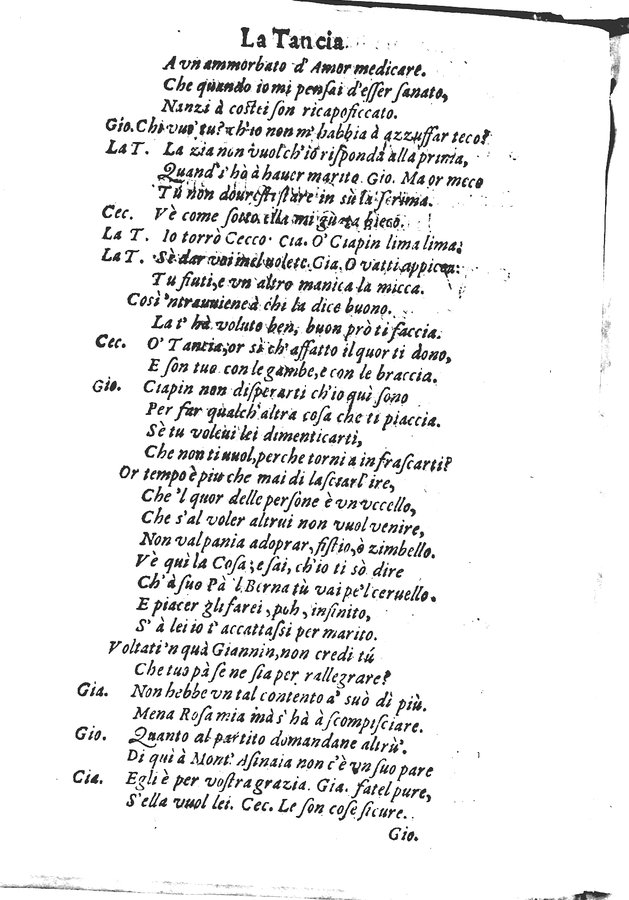 La Tancia.
A vn ammorbato d' Amor medicare.
Che quando io mi pensai d'esser sanato,
Nanzi à costei son ricapoficcato.
Gio. Chi vuo' tu? ch'io non m'habbia à azzuffar teco?
La T. La zia non vuol ch'io risponda alla prima,
Quand s'hà à hauer marito. Gio. Ma or meco
Tù non douresti stare in sù la scrima.
Cec. Vè come sotto ella mi guata bieco.
La T. Io torrò Cecco. Cia. O' Ciapin lima lima:
La T. Sè dar voi mel uolete. Gia. O vatti appicca:
Tu fiuti, e vn altro manica la micca.
Così 'ntrauuiene à chi la dice buono.
La t' hà voluto ben, buon prò ti faccia.
Cec. O' Tancia, or sì ch'affatto il quor ti dono,
E son tuo con le gambe, e con le braccia.
Gio. Ciapin non disperarti ch'io quì sono
Per far qualch'altra cosa che ti piaccia.
Sè tu voleui lei dimenticarti,
Che non ti uuol, perche torni a infrascarti?
Or tempo è piu che mai di lasciarl'ire,
Che 'l quor delle persone è vn vccello,
Che s'al voler altrui non vuol venire,
Non val pania adoprar, fistio, ò zimbello.
Vè quì la Cosa; e sai, ch'io ti sò dire
Ch'à suo Pà 'l Berna tù vai pe'l ceruello.
E piacer gli farei, poh, infinito,
S' à lei io t'accattassi per marito.
Voltati 'n quà Giannin, non credi tú
Che tuo pà se ne sia per rallegrare?
Gia. Non hebbe vn tal contento a' suò dì più.
Mena Rosa mia mà s' hà à scompisciare.
Gio. Quanto al partito domandane altrù.
Di quì à Mont' Asinaia non c'è vn suo pare
Cia. Egli è per vostra grazia. Gia. fatel pure,
S'ella vuol lei. Cec. Le son cose sicure.
Gio.